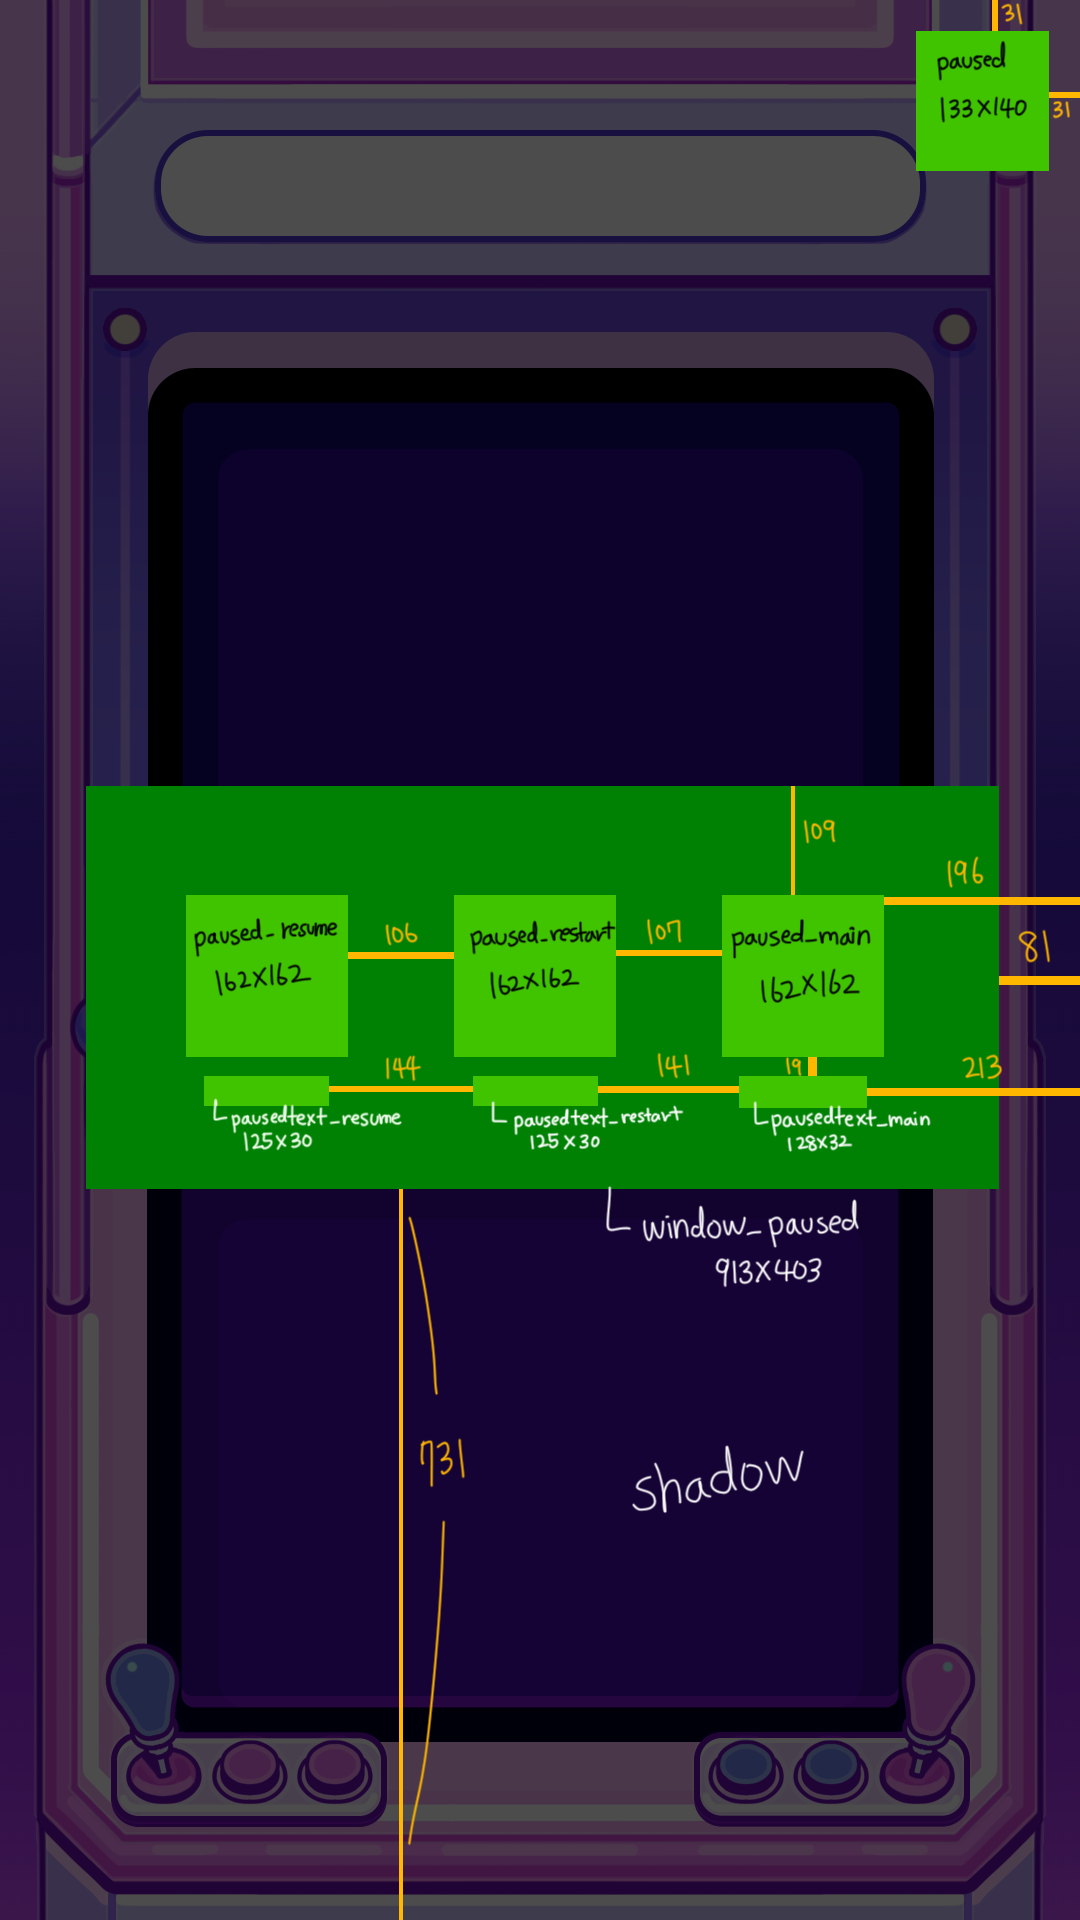 31
paused
133X140
31
109
196
paused_resume
162X162
106
paused_restart
162X162
107
paused_main
162X162
81
144
141
19
213
pausedtext_resume
125X30
pausedtext_restart
125X30
pausedtext_main
128X32
window_paused
913X403
731
shadow